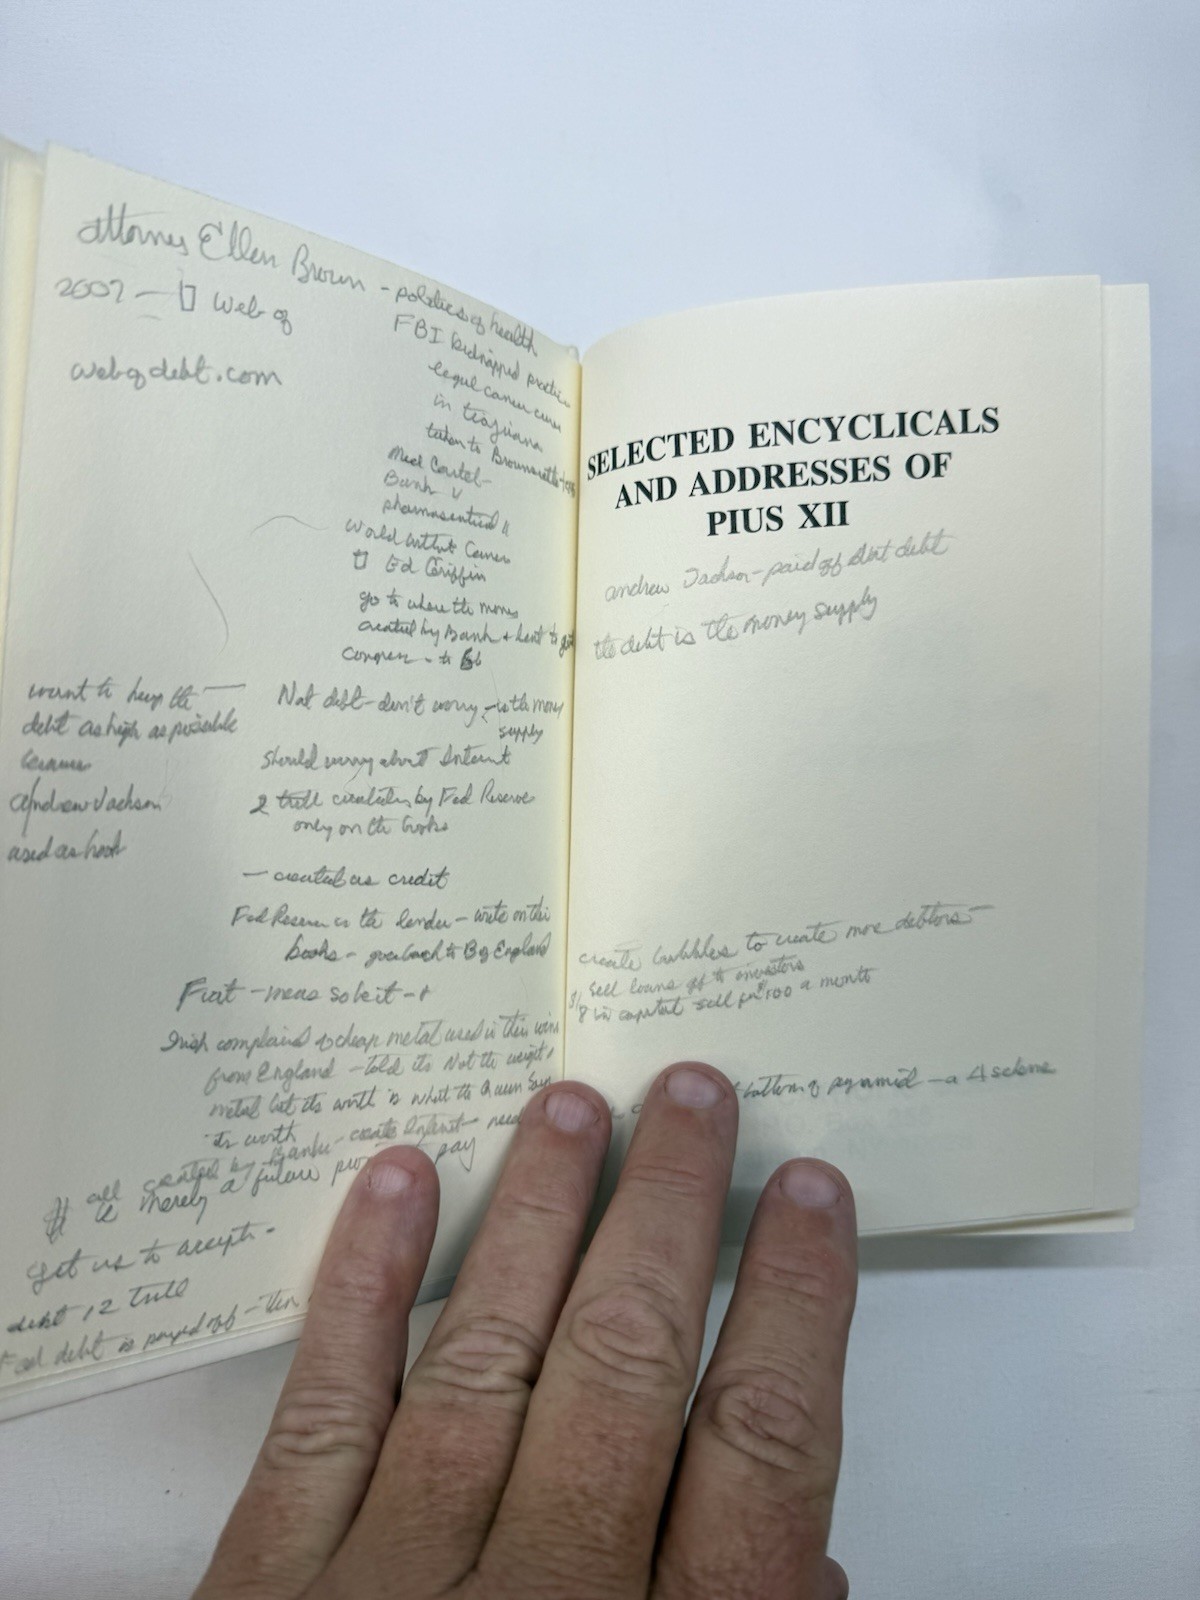 attorney Ellen Brown - politics of health
2007 - Web of
webofdebt.com
FBI kidnapped
legal cancer cure
in
taken to Brownsville
Med Cartel -
Bank "
pharmaceutical "
World without Cancer
Ed Griffin
go to where the money
created by Bank + lent to
Congress - to
want to keep the
debt as high as possible
because
Andrew Jackson
used as hook
Not debt - don't worry - is the money
supply
should worry about Interest
2 trill created by Fed Reserve
only on the books
- created as credit
Fed Reserve is the lender - write on their
books - goes back to B of England
Fiat - means so be it -
Irish complained of cheap metal used in their
from England - told its Not the weight
metal but its worth is what the Queen says
its worth
all created by Banks - create Interest - need
is merely a future pay
get us to accept -
debt 12 trill
Fed debt is payed off - then
SELECTED ENCYCLICALS
AND ADDRESSES OF
PIUS XII
andrew Jackson - paid off debt
the debt is the money supply
create bubbles to create more debtors -
sell loans off to investors
$8 in capital sell for $100 a month
bottom of pyramid - a scheme